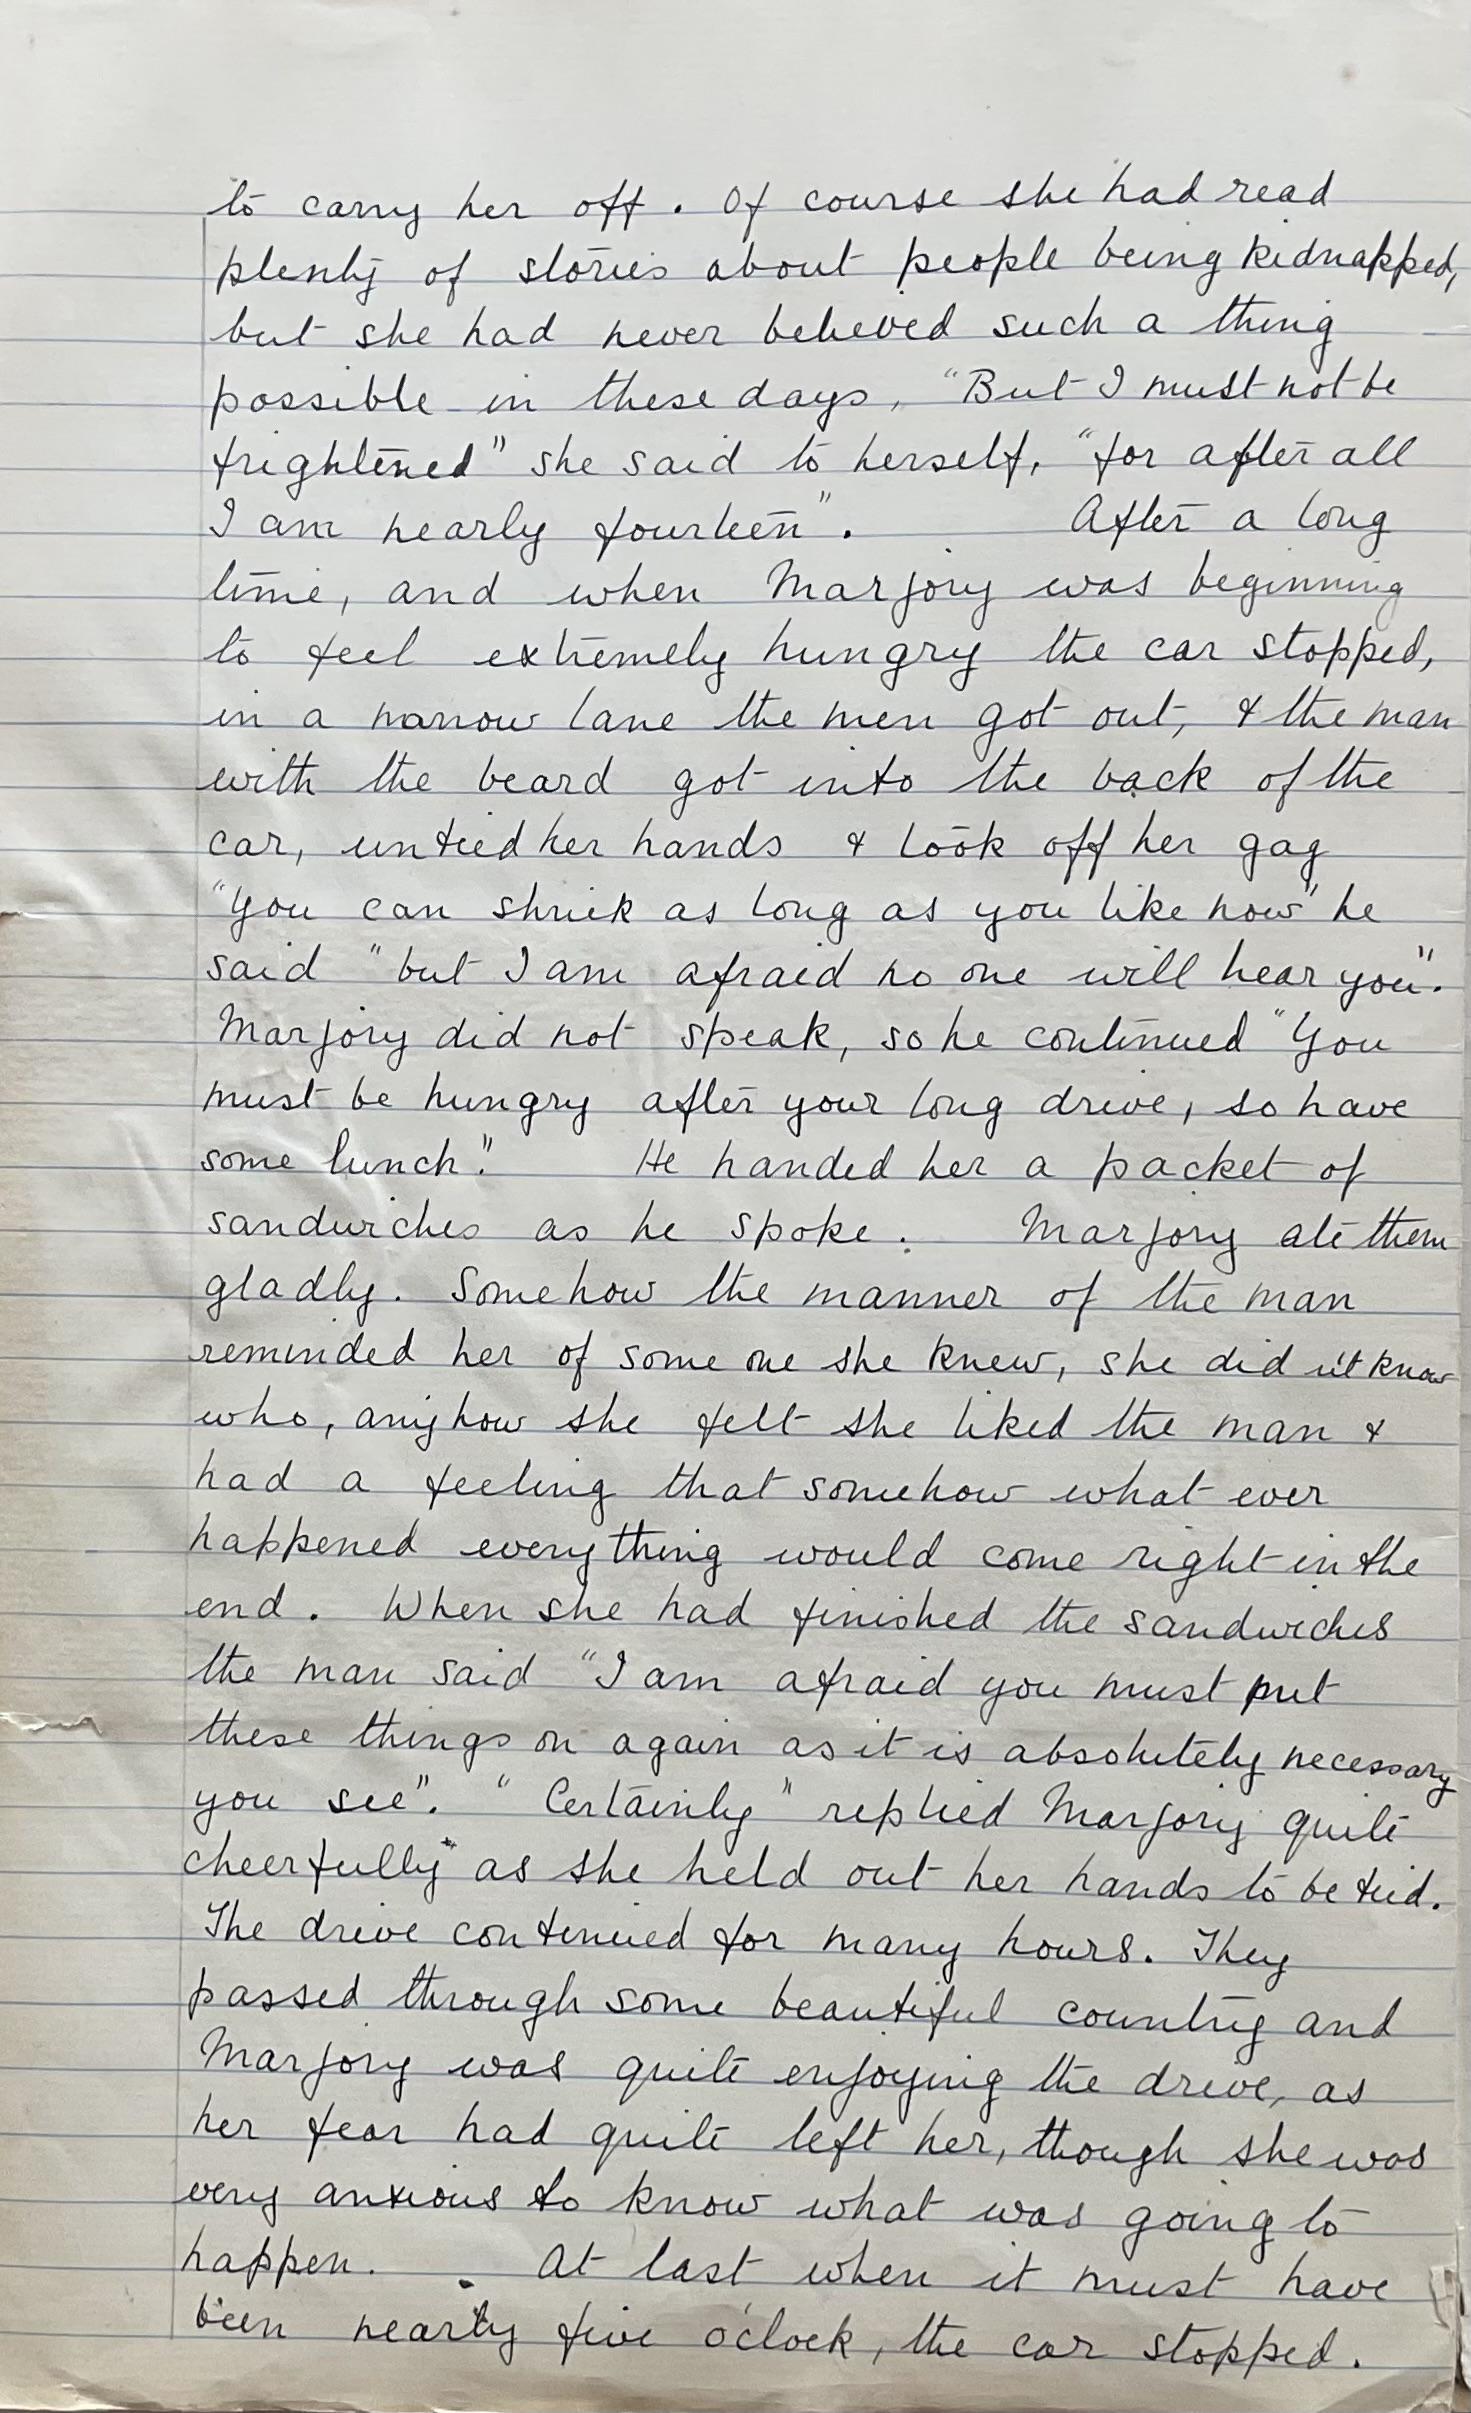 to carry her off. Of course she had read
plenty of stories about people being kidnapped,
but she had never believed such a thing
possible in these days, "But I must not be
frightened" she said to herself, "for after all
I am nearly fourteen". After a long
time, and when Marjory was beginning
to feel extremely hungry the car stopped,
in a narrow lane the men got out, & the man
with the beard got into the back of the
car, untied her hands & took off her gag
"You can shriek as long as you like now" he
said "but I am afraid no one will hear you".
Marjory did not speak, so he continued "You
must be hungry after your long drive, so have
some lunch." He handed her a packet of
sandwiches as he spoke. Marjory ate them
gladly. Somehow the manner of the man
reminded her of some one she knew, she did n't know
who, anyhow she felt she liked the man &
had a feeling that somehow what ever
happened everything would come right in the
end. When she had finished the sandwiches
the man said "I am afraid you must put
these things on again as it is absolutely necessary
you see". "Certainly" replied Marjory quite
cheerfully as she held out her hands to be tied.
The drive continued for many hours. They
passed through some beautiful country and
Marjory was quite enjoying the drive, as
her fear had quite left her, though she was
very anxious to know what was going to
happen. At last when it must have
been nearly five o'clock, the car stopped.